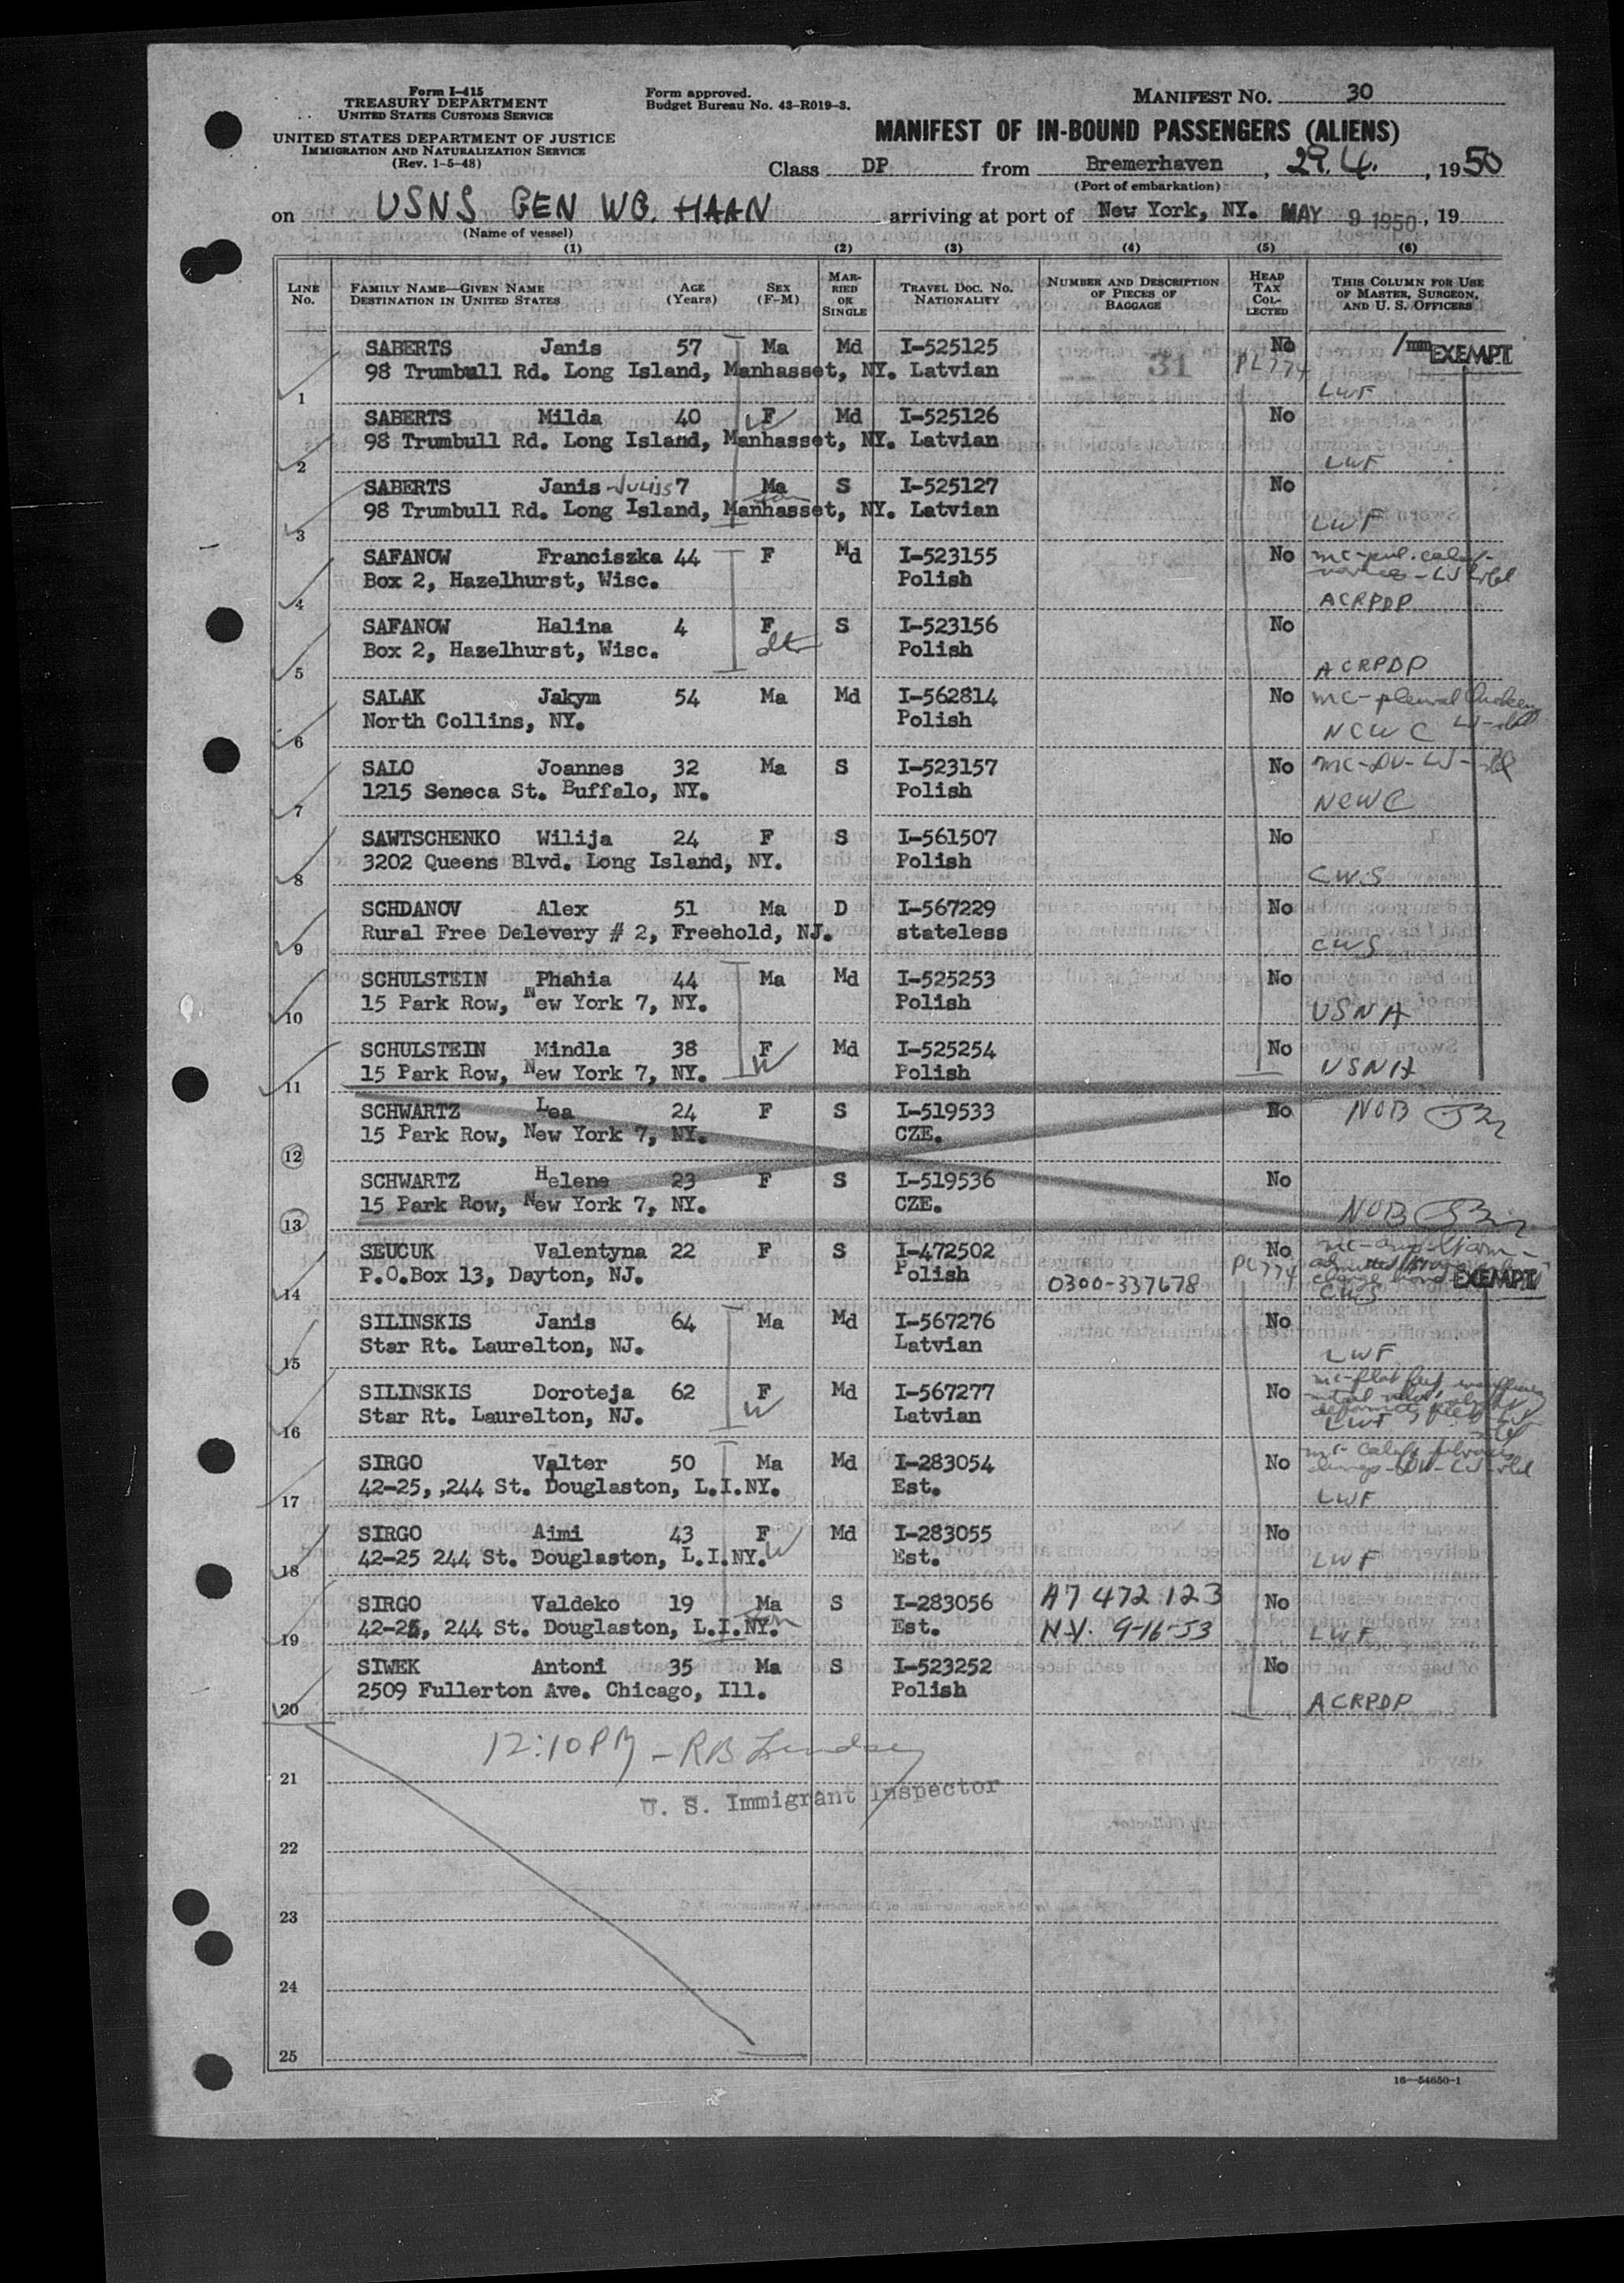 Form I-415
TREASURY DEPARTMENT
UNITED STATES CUSTOMS SERVICE
UNITED STATES DEPARTMENT OF JUSTICE
IMMIGRATION AND NATURALIZATION SERVICE
(Rev. 1-5-48)
Form approved.
Budget Bureau No. 43-R019-3.
MANIFEST NO. 30
MANIFEST OF IN-BOUND PASSENGERS (ALIENS)
Class DP from Bremerhaven, 29.4., 1950
(Port of embarkation)
on USNS GEN WG. HAAN arriving at port of New York, NY. MAY 9 1950, 19
(Name of vessel)
(1) (2) (3) (4) (5) (6)
LINE No. FAMILY NAME—GIVEN NAME DESTINATION IN UNITED STATES AGE (Years) SEX (F-M) MARRIED OR SINGLE TRAVEL DOC. NO. NATIONALITY NUMBER AND DESCRIPTION OF PIECES OF BAGGAGE HEAD TAX COLLECTED THIS COLUMN FOR USE OF MASTER, SURGEON, AND U. S. OFFICERS
SABERTS Janis 57 Ma Md I-525125 No EXEMPT
98 Trumbull Rd. Long Island, Manhasset, NY. Latvian 31 PL774 LWF
1
SABERTS Milda 40 F W Md I-525126 No
98 Trumbull Rd. Long Island, Manhasset, NY. Latvian LWF
2
SABERTS Janis-Julijs 7 Ma son S I-525127 No
98 Trumbull Rd. Long Island, Manhasset, NY. Latvian LWF
3
SAFANOW Franciszka 44 F Md I-523155 No
Box 2, Hazelhurst, Wisc. Polish ACRPDP
4
SAFANOW Halina 4 F dtr S I-523156 No
Box 2, Hazelhurst, Wisc. Polish ACRPDP
5
SALAK Jakym 54 Ma Md I-562814 No mc-pleural
North Collins, NY. Polish NCWC
6
SALO Joannes 32 Ma S I-523157 No
1215 Seneca St. Buffalo, NY. Polish NCWC
7
SAWTSCHENKO Wilija 24 F S I-561507 No
3202 Queens Blvd. Long Island, NY. Polish CWS
8
SCHDANOV Alex 51 Ma D I-567229 No
Rural Free Delevery # 2, Freehold, NJ. stateless CWS
9
SCHULSTEIN Phahia 44 Ma Md I-525253 No
15 Park Row, New York 7, NY. Polish USNA
10
SCHULSTEIN Mindla 38 F W Md I-525254 No
15 Park Row, New York 7, NY. Polish USNA
11
SCHWARTZ Lea 24 F S I-519533 No NOB
15 Park Row, New York 7, NY. CZE.
12
SCHWARTZ Helene 23 F S I-519536 No
15 Park Row, New York 7, NY. CZE. NOB
13
SEUCUK Valentyna 22 F S I-472502 No
P.O.Box 13, Dayton, NJ. Polish 0300-337678 PL774 EXEMPT
14 CWS
SILINSKIS Janis 64 Ma Md I-567276 No
Star Rt. Laurelton, NJ. Latvian LWF
15
SILINSKIS Doroteja 62 F W Md I-567277 No
Star Rt. Laurelton, NJ. Latvian LWF
16
SIRGO Valter 50 Ma Md I-283054 No
42-25, ,244 St. Douglaston, L.I.NY. Est. LWF
17
SIRGO Aimi 43 F W Md I-283055 No
42-25 244 St. Douglaston, L.I.NY. Est. LWF
18
SIRGO Valdeko 19 Ma son S I-283056 A7 472 123 No
42-25, 244 St. Douglaston, L.I.NY. Est. N.Y. 9-16-53 LWF
19
SIWEK Antoni 35 Ma S I-523252 No
2509 Fullerton Ave. Chicago, Ill. Polish ACRPDP
20
12:10 PM - RB Lindsey
21
U. S. Immigrant Inspector
22
23
24
25
16—54650-1